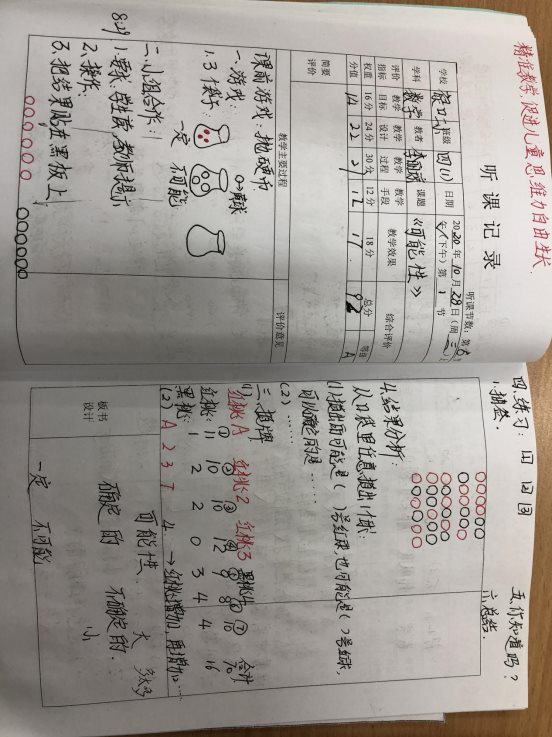 精准教学 促进儿童思维力自由生长
听课记录
听课节数：第6节
学校 班级 四(1) 日期 2020年10月28日(周三)
学科 数学 教者 课题 《可能性》 (下午)第1节
评价指标 教学目标 教学设计 教学过程 教学手段 教学效果 综合评价
权重 16分 24分 30分 12分 18分 总分 等级
分值 14 22 27 12 17 92 A
简要评价
教学主要过程 评价意见
课前游戏：抛硬币
一、游戏：
1. 3个袋子：
一定 不可能
二、小组合作：
1. 要求：学生读，教师提示
2. 操作：
3. 把结果贴在黑板上
4. 结果分析：
从口袋里任意摸出1个球：
(1) 摸出可能是( )号红球，也可能是( )号红球，
(2) ……
可以确定的是……
三、摸牌
(1) 红桃A 红桃2 红桃3 黑桃4
① ② ③ ④ ⑤ ⑥ ⑦ 合计
红桃： 11 10 10 12 9 8 10 70
黑桃： 1 2 2 0 3 4 4 16
(2) A 2 3 4 →红桃增加，再增加……
板书设计
可能性
确定的 不确定的
一定 不可能 大 小
四、练习：
1. 抽签.
五、你知道吗？
六、总结.